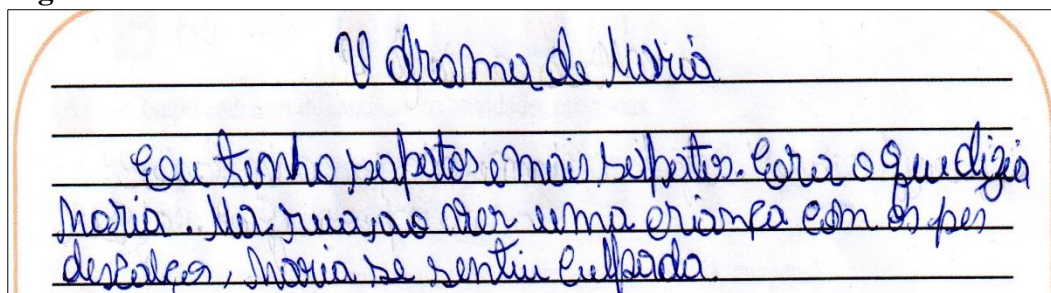 O drama de Maria
Eu tenho sapatos e mais sapatos. Era o que dizia
Maria. Na rua, ao ver uma criança com os pes
descalços, Maria se sentiu culpada.